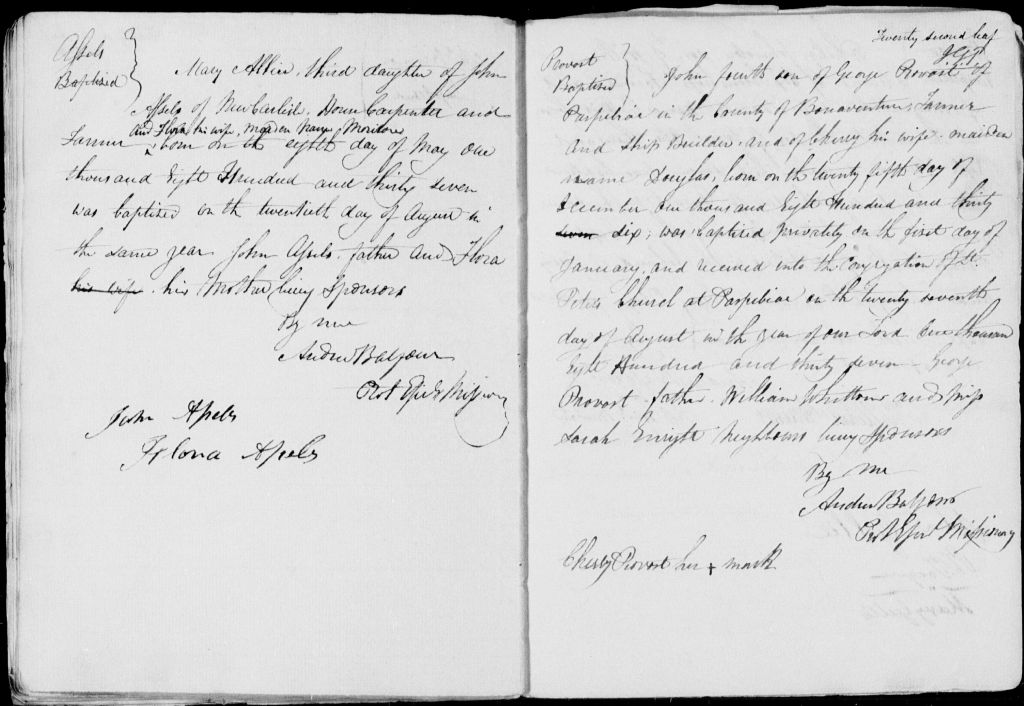 Assels
Baptised
Mary Allin, third daughter of John
Assels of New Carlisle, House Carpenter and
and Flora his wife, maiden name
Farmer born on the eighth day of May One
thousand Eight Hundred and thirty seven
was baptized on the twentieth day of August in
the same year John Assels father and Flora
his wife his Mother being Sponsors
By me
Andrew Balfour
Prot Episl Missiony
John Assels
Flora Assels
Twenty second leaf
Provost
Baptised
John fourth son of George Provost of
Paspibiac in the County of Bonaventure Farmer
and Ship Builder, and of Cherry his wife maiden
name Douglas, born on the twenty fifth day of
December One thousand Eight Hundred and thirty
seven six; was baptised privately on the first day of
January, and received into the Congregation of St.
Peter's Church at Paspibiac on the twenty seventh
day of August in the year of our Lord One thousand
Eight Hundred and thirty seven George
Provost father William Whittom and Miss
Sarah Enright Neighbours being Sponsors
By me
Andrew Balfour
Prot Episl Missionary
Cherry Provost her + mark